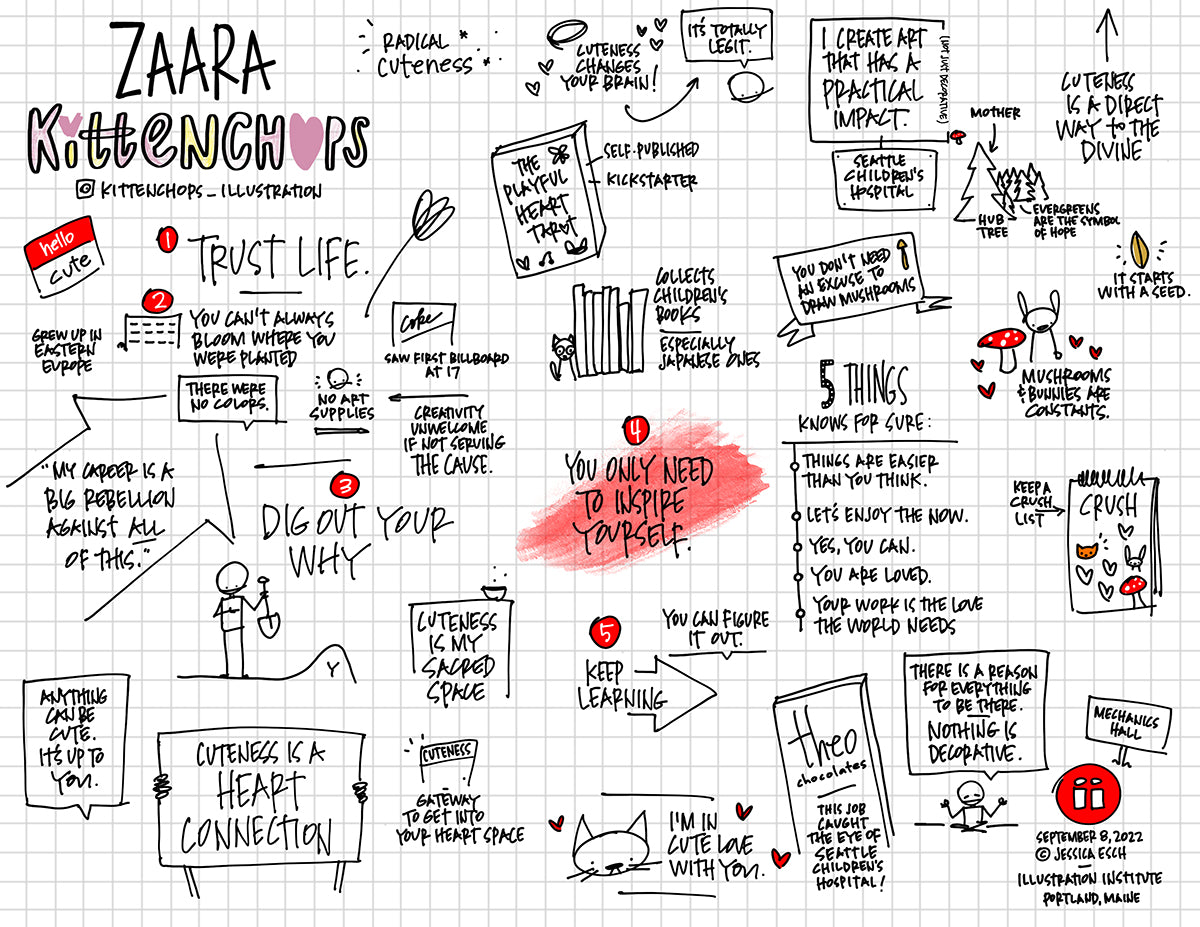 ZAARA
KittenCHOPS
KITTENCHOPS_ILLUSTRATION
RADICAL
CUTENESS
CUTENESS
CHANGES
YOUR BRAIN!
IT'S TOTALLY
LEGIT.
I CREATE ART
THAT HAS A
PRACTICAL
IMPACT.
(NOT JUST DECORATIVE)
SEATTLE
CHILDREN'S
HOSPITAL
MOTHER
HUB
TREE
EVERGREENS
ARE THE SYMBOL
OF HOPE
CUTENESS
IS A DIRECT
WAY to THE
DIVINE
IT STARTS
WITH A SEED.
THE
PLAYFUL
HEART
TAROT
SELF-PUBLISHED
KICKSTARTER
hello
cute
1
TRUST LIFE.
2
YOU CAN'T ALWAYS
BLOOM WHERE YOU
WERE PLANTED
GREW UP IN
EASTERN
EUROPE
Coke
SAW FIRST BILLBOARD
AT 17
THERE WERE
NO COLORS.
NO ART
SUPPLIES
CREATIVITY
UNWELCOME
IF NOT SERVING
THE CAUSE.
"MY CAREER IS A
BIG REBELLION
AGAINST ALL
OF THIS."
3
DIG OUT YOUR
WHY
Y
COLLECTS
CHILDREN'S
BOOKS
ESPECIALLY
JAPANESE ONES
YOU DON'T NEED
AN EXCUSE TO
DRAW MUSHROOMS
MUSHROOMS
& BUNNIES ARE
CONSTANTS.
4
YOU ONLY NEED
TO INSPIRE
YOURSELF.
5 THINGS
KNOWS FOR SURE:
THINGS ARE EASIER
THAN YOU THINK.
LET'S ENJOY THE NOW.
YES, YOU CAN.
YOU ARE LOVED.
YOUR WORK IS THE LOVE
THE WORLD NEEDS
KEEP A
CRUSH
LIST
CRUSH
CUTENESS
IS MY
SACRED
SPACE
5
KEEP
LEARNING
YOU CAN FIGURE
IT OUT.
ANYTHING
CAN BE
CUTE.
IT'S UP TO
YOU.
CUTENESS IS A
HEART
CONNECTION
CUTENESS
GATEWAY
TO GET INTO
YOUR HEART SPACE
I'M IN
CUTE LOVE
WITH YOU.
theo
chocolates
THIS JOB
CAUGHT
THE EYE OF
SEATTLE
CHILDREN'S
HOSPITAL!
THERE IS A REASON
FOR EVERYTHING
TO BE THERE.
NOTHING IS
DECORATIVE.
MECHANICS
HALL
ii
SEPTEMBER 8, 2022
© JESSICA ESCH
ILLUSTRATION INSTITUTE
PORTLAND, MAINE